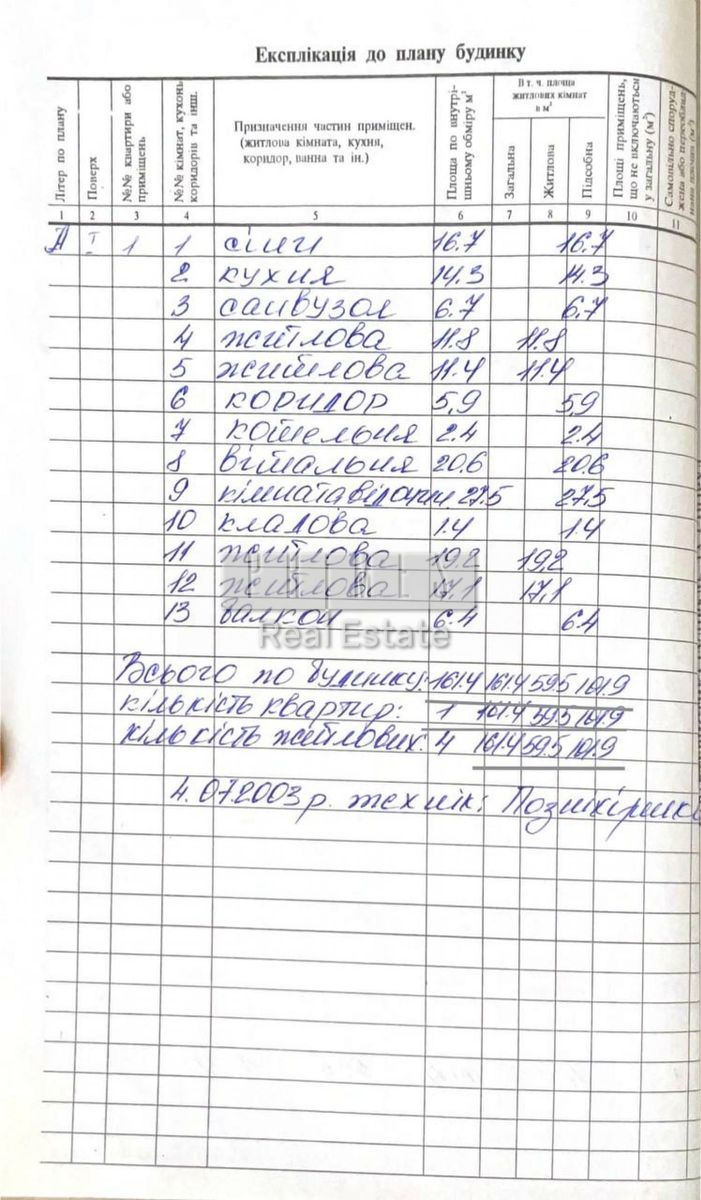 Експлікація до плану будинку
Літер по плану
Поверх
№№ квартири або приміщень
№№ кімнат, кухонь коридорів та інш.
Призначення частин приміщен.
(житлова кімната, кухня,
коридор, ванна та ін.)
Площа по внутрі-
шньому обміру м²
В т. ч. площа
житлових кімнат
в м²
Загальна
Житлова
Підсобна
Площі приміщень,
що не включаються
у загальну (м²)
Самопільно споруд-
жена або переоблад-
1 2 3 4 5 6 7 8 9 10 11
А І 1 1 сіни 16.7 16.7
2 кухня 14.3 14.3
3 санвузол 6.7 6.7
4 житлова 11.8 11.8
5 житлова 11.4 11.4
6 коридор 5,9 5,9
7 котельня 2.4 2.4
8 вітальня 20.6 20.6
9 кімната відпочин. 27.5 27,5
10 кладова 1.4 1.4
11 житлова 19.2 19.2
12 житлова 17,1 17,1
13 балкон 6.4 6.4
Real Estate
Всього по будинку: 161.4 161.4 59.5 101.9
кількість квартир: 1 161.4 59.5 101.9
кількість житлових: 4 161.4 59.5 101.9
4.07.2003 р. технік: